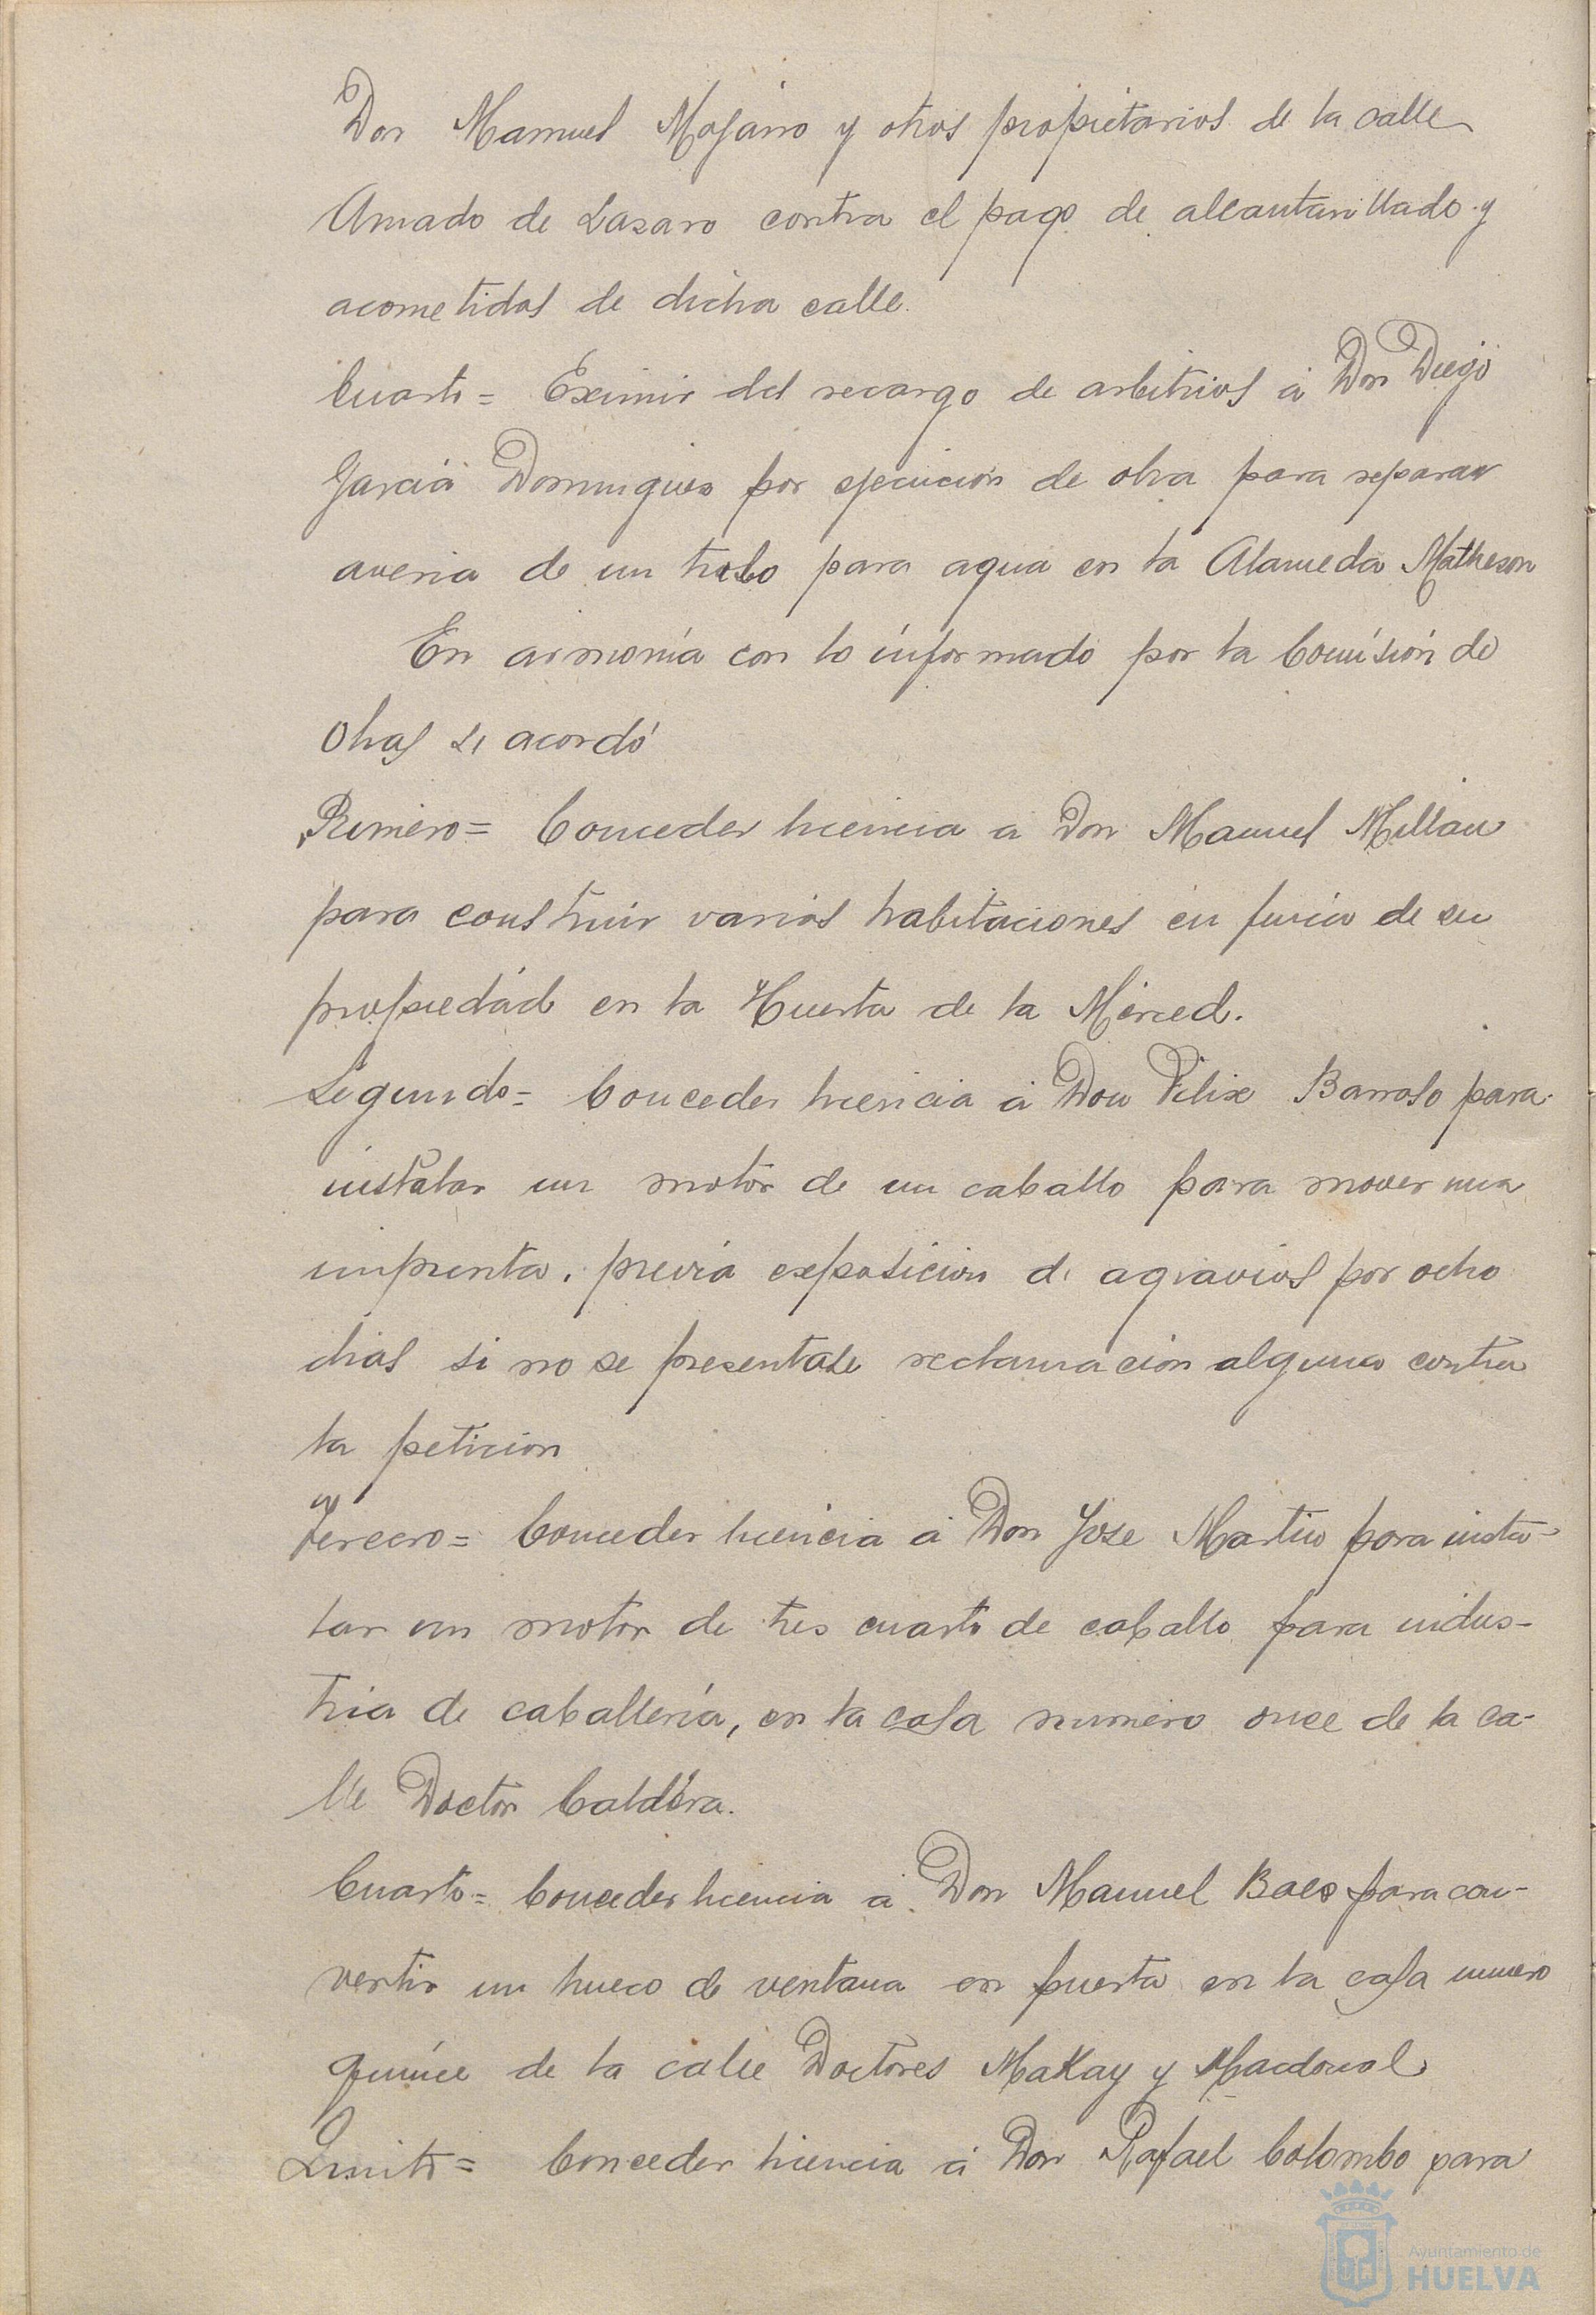 Don Manuel Mojarro y otros propietarios de la calle
Amado de Lazaro contra el pago de alcantarillado y
acometidas de dicha calle.
Cuarto = Eximir del recargo de arbitrios á Don Diego
García Dominguez por ejecución de obra para reparar
averia de un tubo para agua en la Alameda Matheson
En armonía con lo informado por la Comisión de
Obras se acordó
Primero = Conceder licencia a Don Manuel Millan
para construir varias habitaciones en finca de su
propiedad en la Huerta de la Merced.
Segundo = Conceder licencia á Don Felix Barroso para
instalar un motor de un caballo para mover una
imprenta, previa exposicion de agravios por ocho
dias si no se presentase reclamación alguna contra
la peticion
Tercero = Conceder licencia á Don Jose Martin para insta-
lar un motor de tres cuarto de caballo para indus-
tria de caballería, en la casa numero once de la ca-
lle Doctor Caldera.
Cuarto = Conceder licencia á Don Manuel Baez para con-
vertir un hueco de ventana en puerta en la casa numero
quince de la calle Doctores MaKay y Macdonal
Quinto = Conceder licencia á Don Rafael Colombo para
Ayuntamiento de
HUELVA